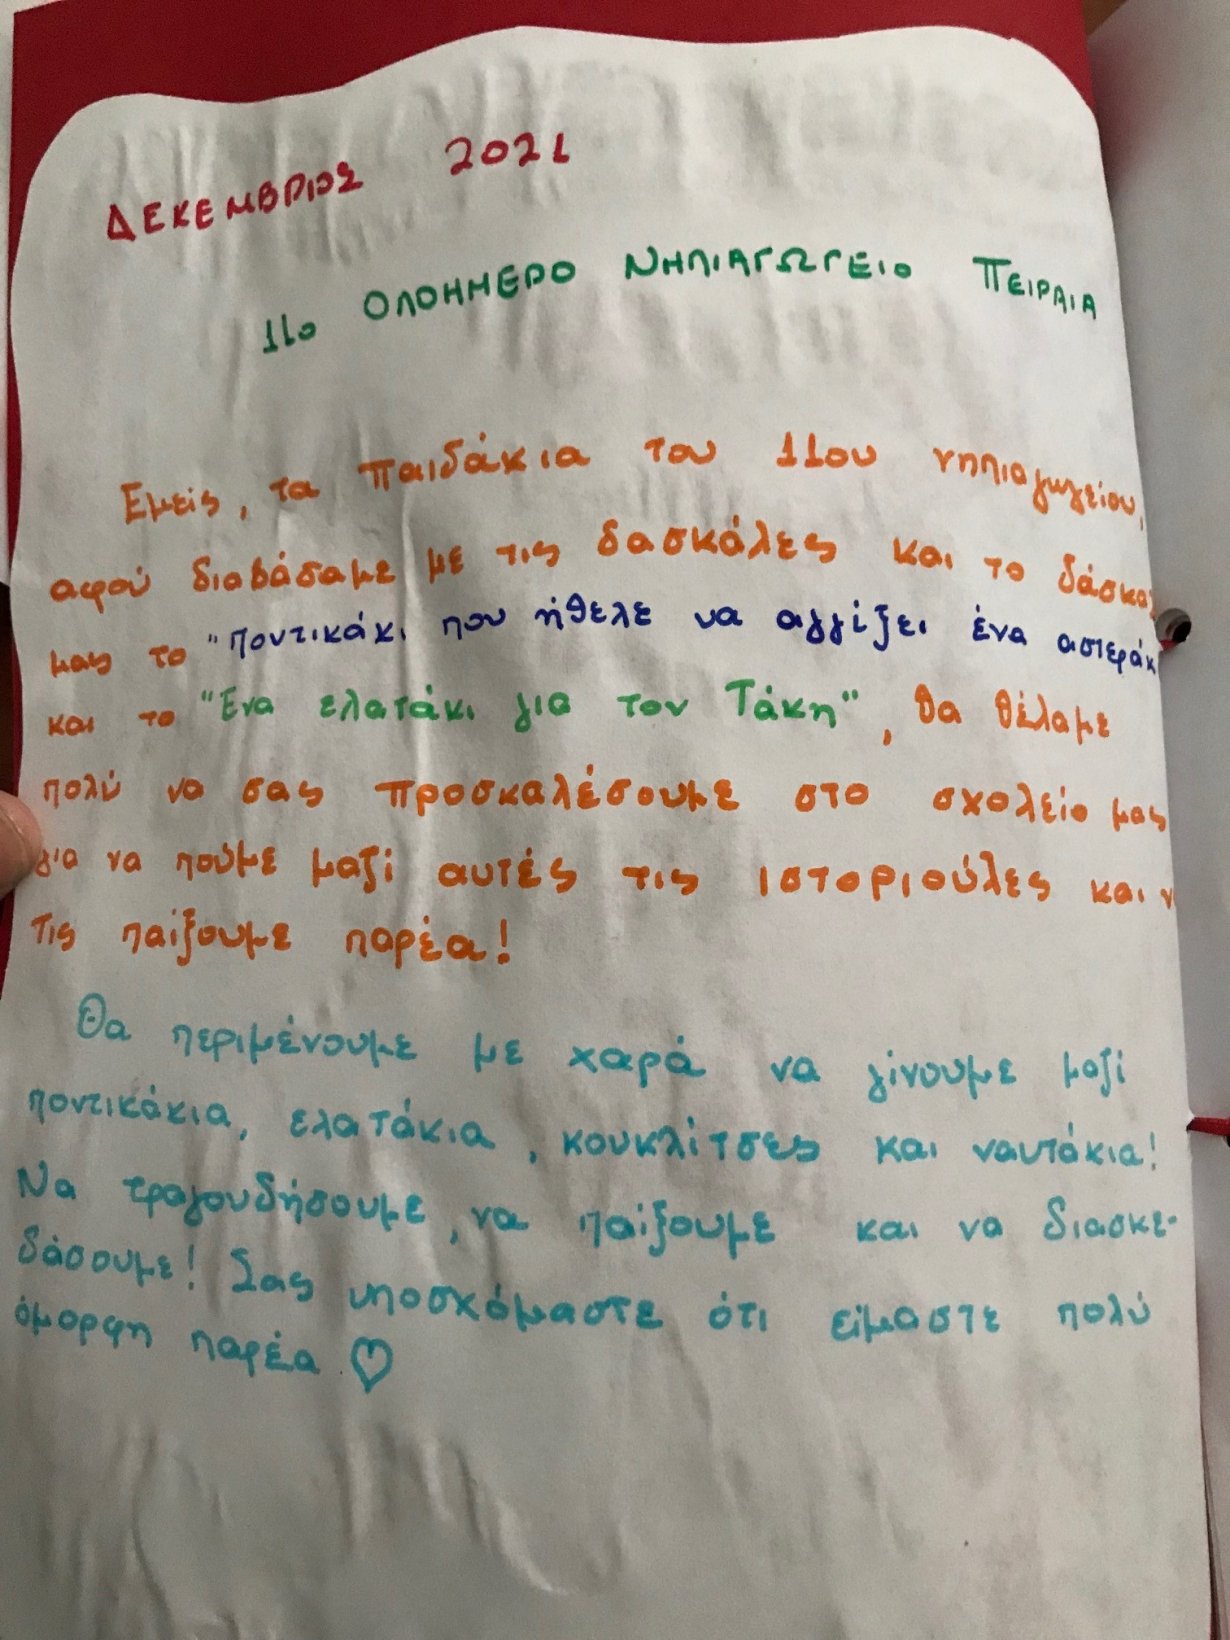 ΔΕΚΕΜΒΡΙΟΣ 2021
11ο ΟΛΟΗΜΕΡΟ ΝΗΠΙΑΓΩΓΕΙΟ ΠΕΙΡΑΙΑ
Εμείς, τα παιδάκια του 11ου νηπιαγωγείου,
αφού διαβάσαμε με τις δασκάλες και το δάσκα
μας το "Ποντικάκι που ήθελε να αγγίξει ένα αστεράκι
και το "Ένα ελατάκι για τον Τάκη", θα θέλαμε
πολύ να σας προσκαλέσουμε στο σχολείο μας
για να πούμε μαζί αυτές τις ιστοριούλες και ν
τις παίξουμε παρέα!
Θα περιμένουμε με χαρά να γίνουμε μαζί
ποντικάκια, ελατάκια, κουκλίτσες και ναυτάκια!
Να τραγουδήσουμε, να παίξουμε και να διασκε-
δάσουμε! Σας υποσχόμαστε ότι είμαστε πολύ
όμορφη παρέα ♡